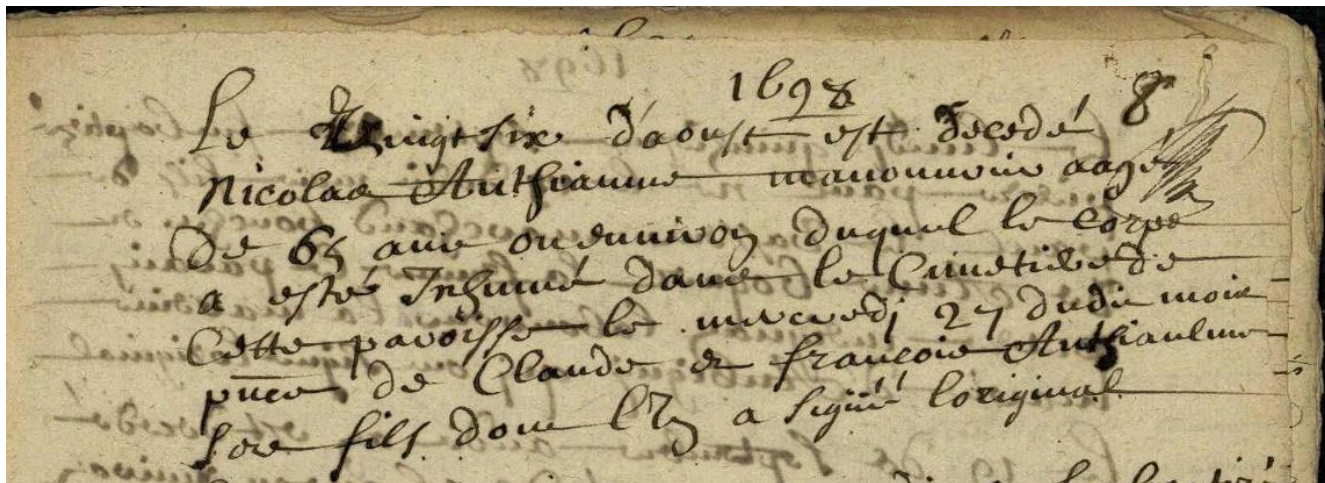 1698
Le Vingt six d'aoust est decedé 8
Nicolas Anthiaume manouvrie aagé
de 65 ans ou environ duquel le corps
a esté Inhumé dans le Cimetiere de
Cette paroisse le mercredj 27 dudit mois
pnce de Claude et francois Anthiaulme
ses fils dont l'un a signé loriginal